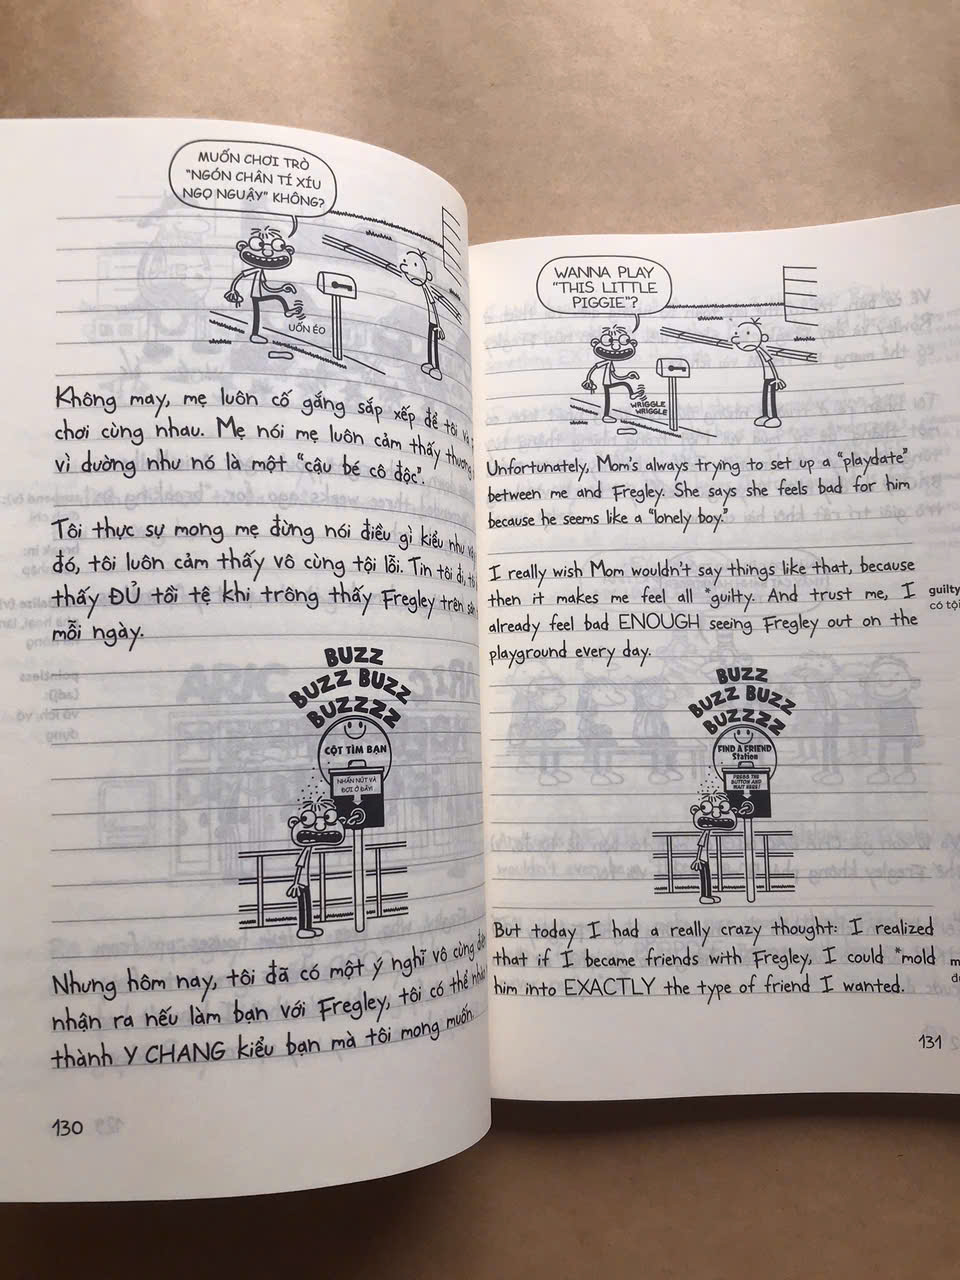 MUỐN CHƠI TRÒ
"NGÓN CHÂN TÍ XÍU
NGỌ NGUẬY" KHÔNG?
UỐN ÉO
Không may, mẹ luôn cố gắng sắp xếp để tôi và
chơi cùng nhau. Mẹ nói mẹ luôn cảm thấy thương
vì dường như nó là một "cậu bé cô độc".
Tôi thực sự mong mẹ đừng nói điều gì kiểu như
đó, tôi luôn cảm thấy vô cùng tội lỗi. Tin tôi đi,
thấy ĐỦ tồi tệ khi trông thấy Fregley trên sân
mỗi ngày.
BUZZ
BUZZ BUZZ
BUZZZZ
CỘT TÌM BẠN
NHẤN NÚT VÀ
ĐỢI Ở ĐÂY!
Nhưng hôm nay, tôi đã có một ý nghĩ vô cùng
nhận ra nếu làm bạn với Fregley, tôi có thể
thành Y CHANG kiểu bạn mà tôi mong muốn.
130
WANNA PLAY
"THIS LITTLE
PIGGIE"?
WRIGGLE
WRIGGLE
Unfortunately, Mom's always trying to set up a "playdate"
between me and Fregley. She says she feels bad for him
because he seems like a "lonely boy."
I really wish Mom wouldn't say things like that, because
then it makes me feel all *guilty. And trust me, I
already feel bad ENOUGH seeing Fregley out on the
playground every day.
guilty
có tội
BUZZ
BUZZ BUZZ
BUZZZZ
FIND A FRIEND
Station
PRESS THE
BUTTON AND
WAIT HERE!
But today I had a really crazy thought: I realized
that if I became friends with Fregley, I could *mold
him into EXACTLY the type of friend I wanted.
131